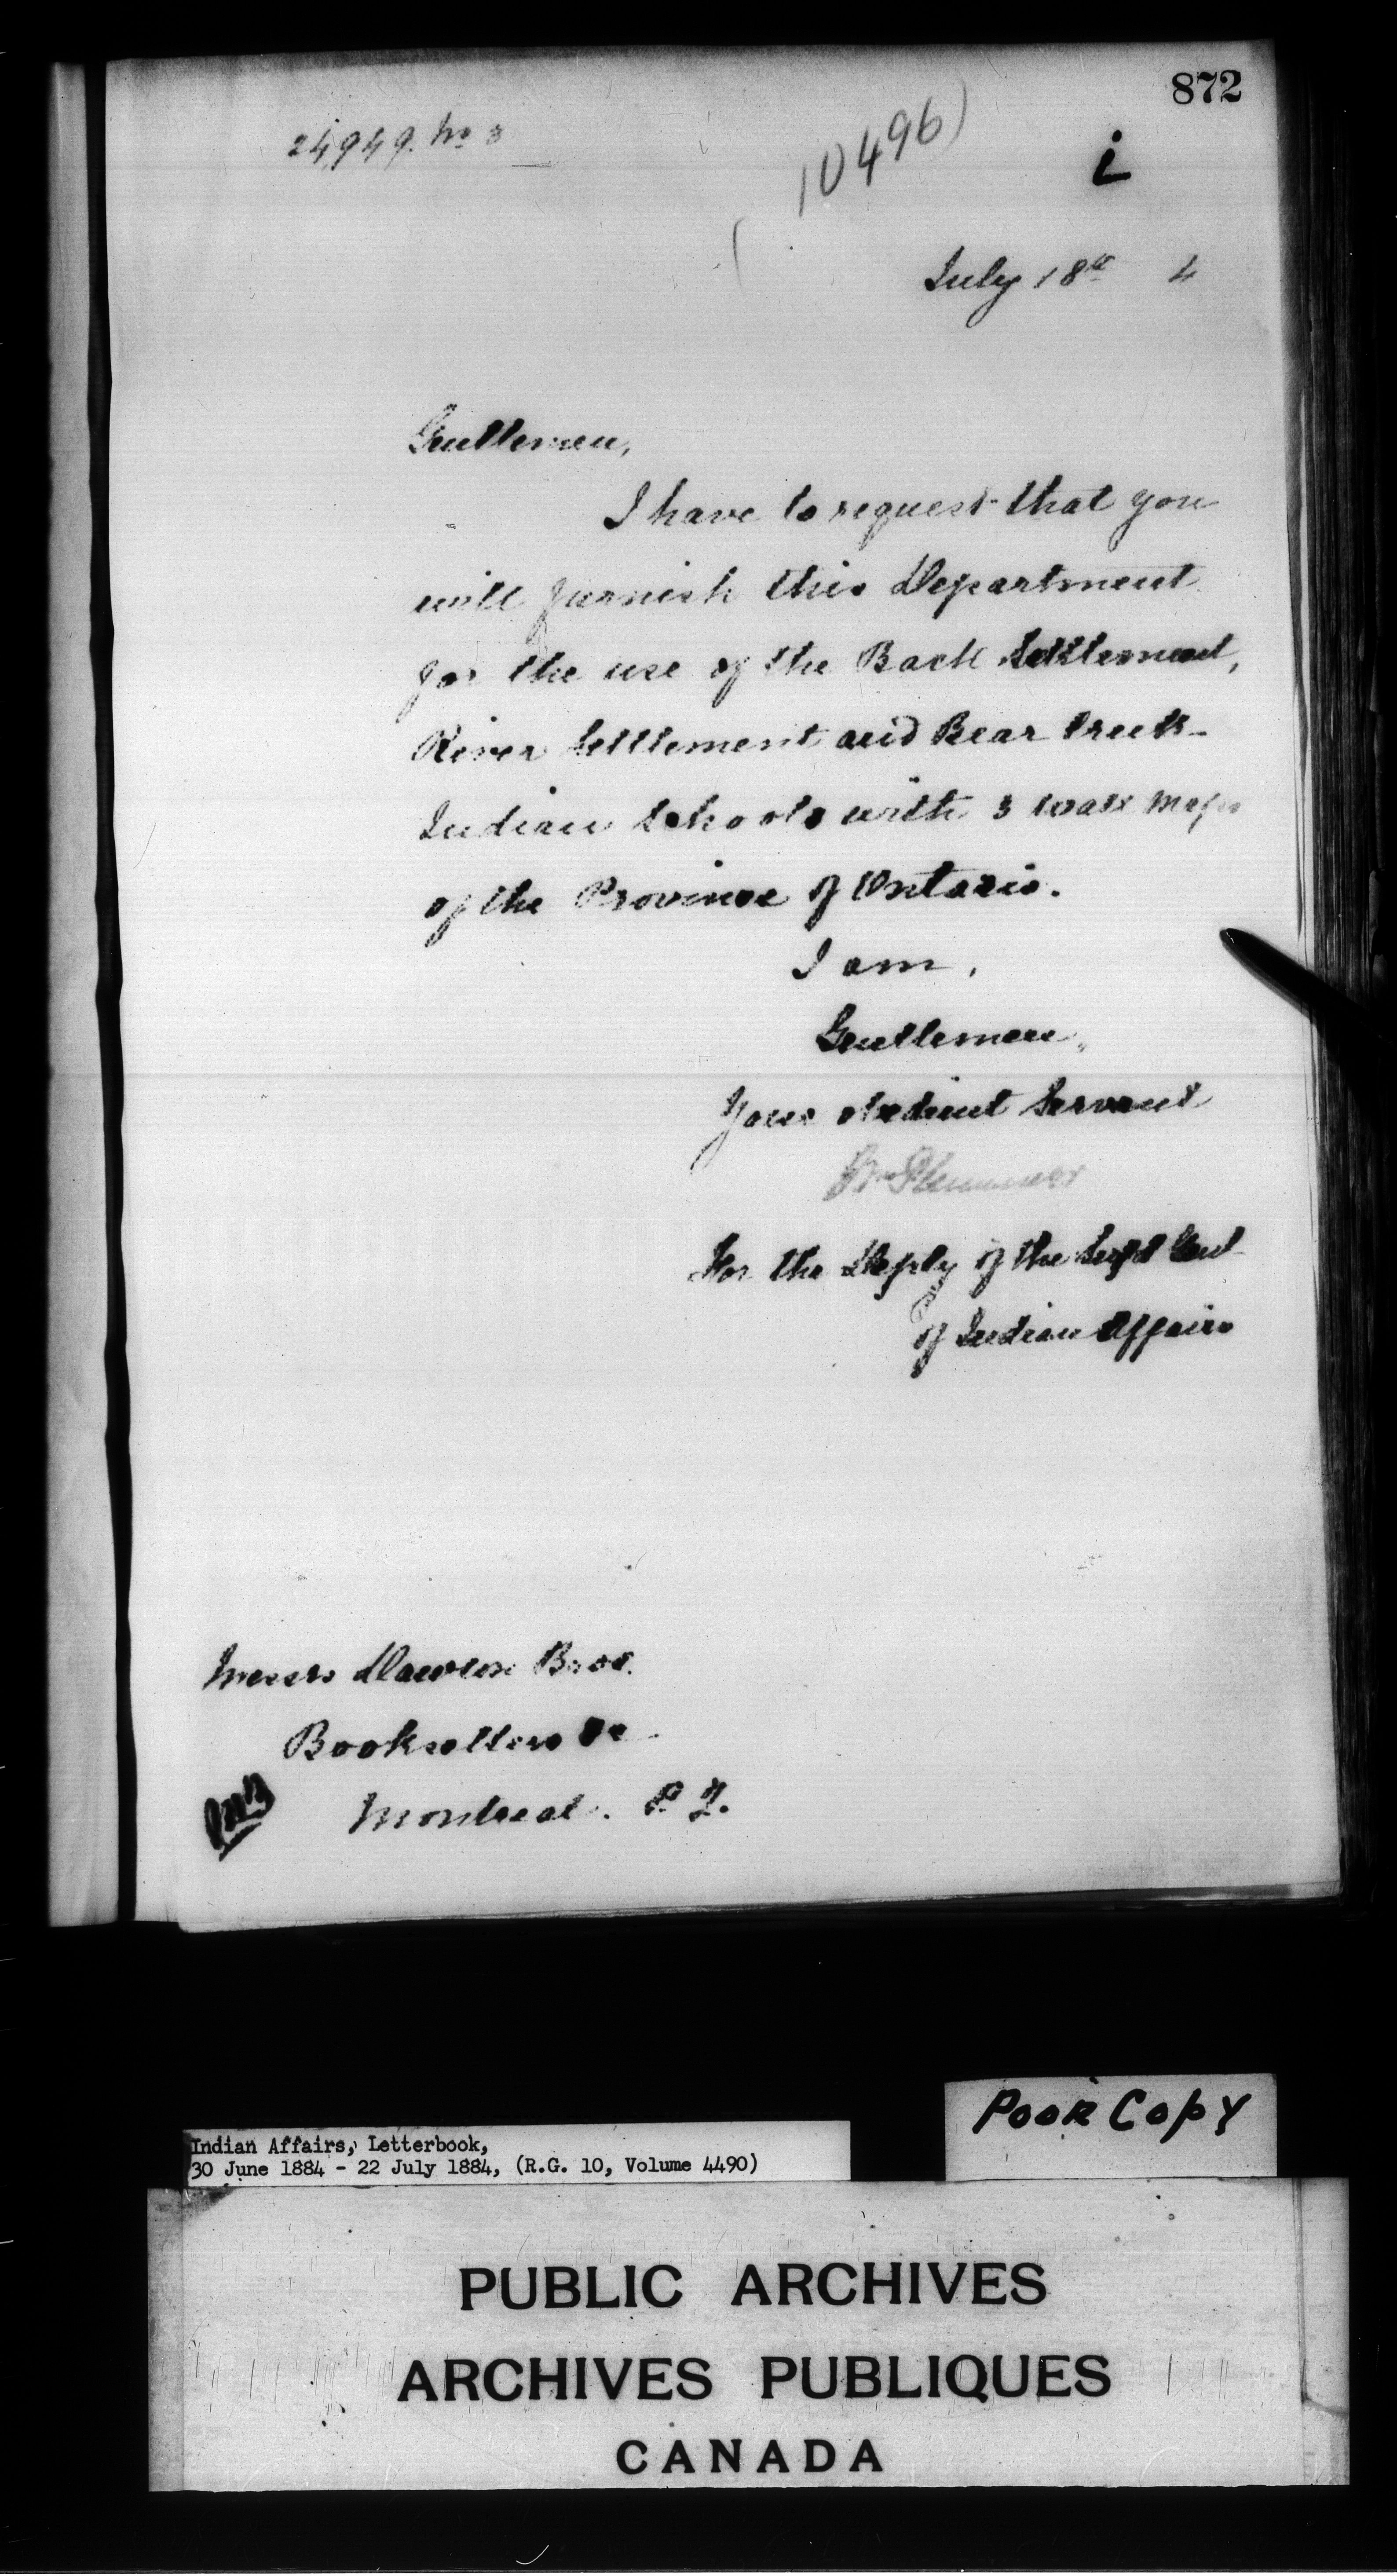 872
24,949. No 3
10496)
i
July 18th 4
Gentlemen,
I have to request that you
will furnish this Department
for the use of the Back Settlement,
River Settlement and Bear Creek
Indian Schools with 3 Wall Maps
of the Province of Ontario.
I am,
Gentlemen,
Your obedient Servant
Wm Plummer
For the Depty of the Supt Genl
of Indian Affairs
Messrs Dawson Bros.
Booksellers &c
Montreal. P. Q.
Poor Copy
Indian Affairs, Letterbook,
30 June 1884 - 22 July 1884, (R.G. 10, Volume 4490)
PUBLIC ARCHIVES
ARCHIVES PUBLIQUES
CANADA